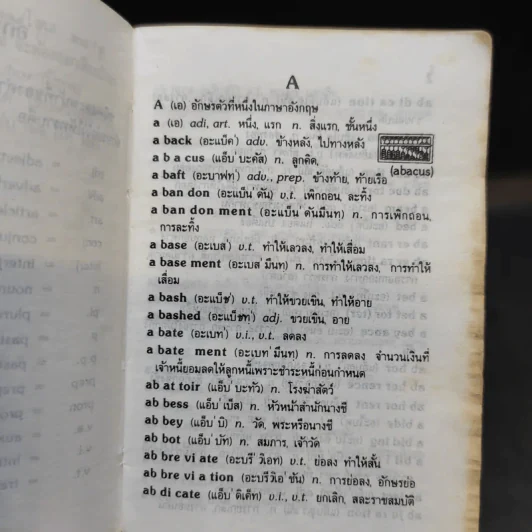 A
A (เอ) อักษรตัวที่หนึ่งในภาษาอังกฤษ
a (เอ) adj, art. หนึ่ง, แรก n. สิ่งแรก, ชั้นหนึ่ง
a back (อะแบ็ค') adv. ข้างหลัง, ไปทางหลัง
a b a cus (แอ็บ'บะคัส) n. ลูกคิด,
(abacus)
a baft (อะบาฟท') adv., prep. ข้างท้าย, ท้ายเรือ
a ban don (อะแบ็น'ดัน) v.t. เพิกถอน, ละทิ้ง
a ban don ment (อะแบ็น'ดันมึนท) n. การเพิกถอน,
การละทิ้ง
a base (อะเบส') v.t. ทำให้เลวลง, ทำให้เสื่อม
a base ment (อะเบส'มึนท) n. การทำให้เลวลง, การทำให้
เสื่อม
a bash (อะแบ็ช') v.t. ทำให้ขวยเขิน, ทำให้อาย
a bashed (อะแบ็ชท') adj. ขวยเขิน, อาย
a bate (อะเบท') v.i., v.t. ลดลง
a bate ment (อะเบท'มึนท) n. การลดลง จำนวนเงินที่
เจ้าหนี้ยอมลดให้ลูกหนี้เพราะชำระหนี้ก่อนกำหนด
ab at toir (แอ็บ'บะทัว) n. โรงฆ่าสัตว์
ab bess (แอ็บ'เบ็ส) n. หัวหน้าสำนักนางชี
ab bey (แอ็บ'บิ) n. วัด, พระหรือนางชี
ab bot (แอ็บ'บัท) n. สมภาร, เจ้าวัด
ab bre vi ate (อะบรี'วิเอท) v.t. ย่อลง ทำให้สั้น
ab bre vi a tion (อะบรีวิเอ'ชัน) n. การย่อลง, อักษรย่อ
ab di cate (แอ็บ'ดิเค็ท) v.i., v.t. ยกเลิก, สละราชสมบัติ